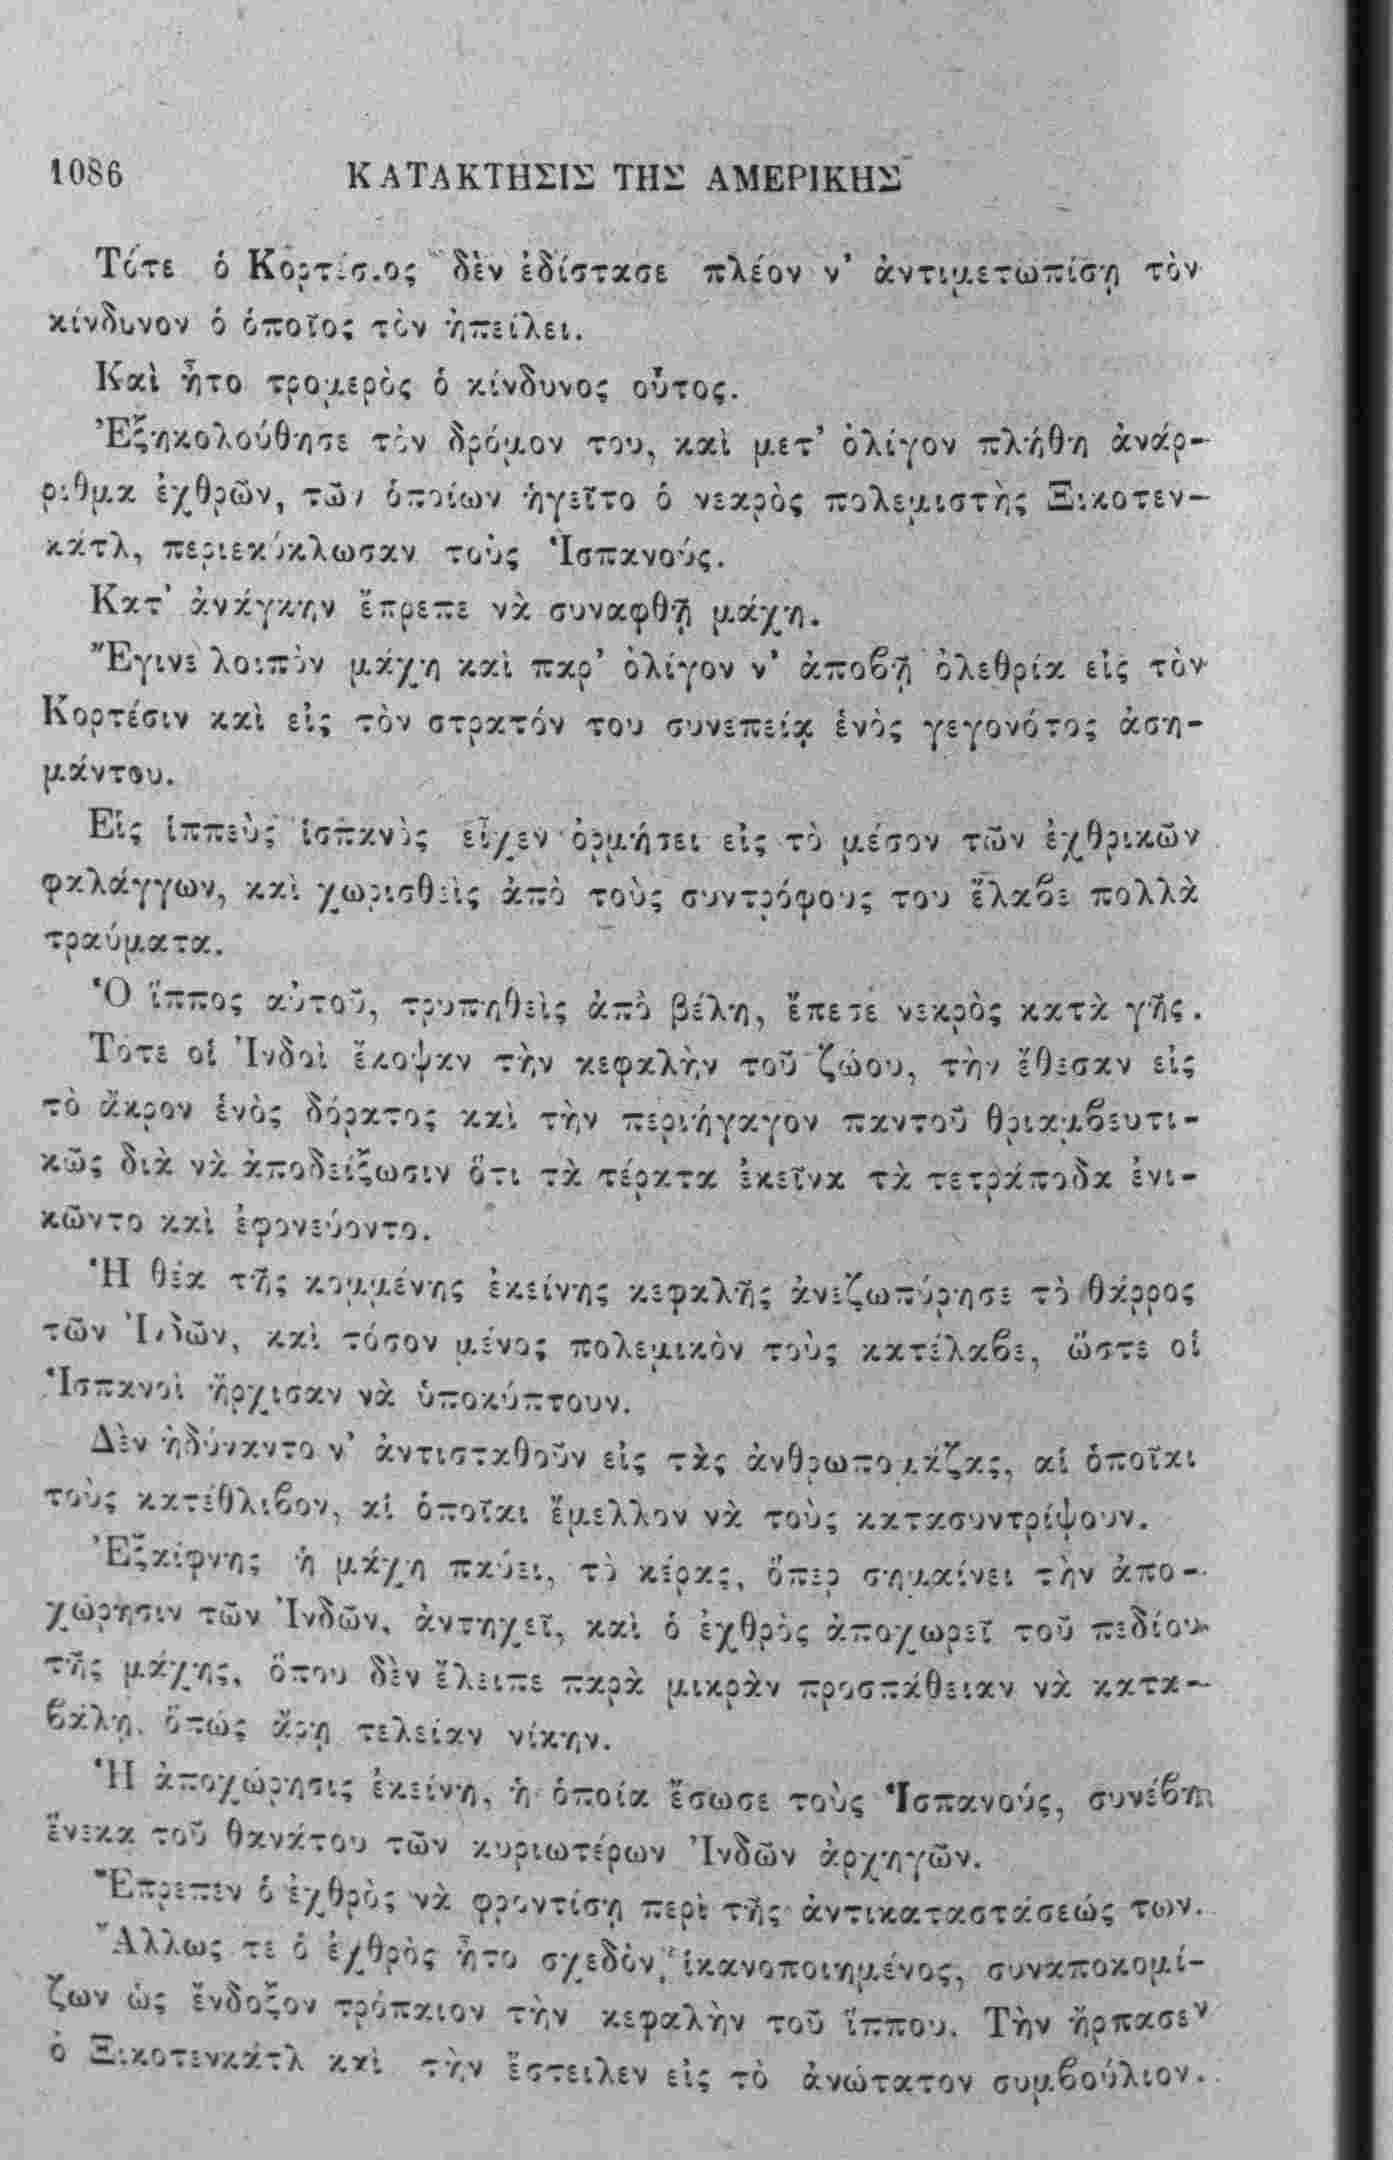 1086 ΚΑΤΑΚΤΗΣΙΣ ΤΗΣ ΑΜΕΡΙΚΗΣ
Τότε ὁ Κορτέσιος δὲν ἐδίστασε πλέον ν' ἀντιμετωπίσῃ τὸν
κίνδυνον ὁ ὁποῖος τὸν ἠπείλει.
Καὶ ἦτο τρομερὸς ὁ κίνδυνος οὗτος.
Ἐξηκολούθησε τὸν δρόμον του, καὶ μετ' ὀλίγον πλήθη ἀνάρ-
ριθμα ἐχθρῶν, τῶν ὁποίων ἡγεῖτο ὁ νεκρὸς πολεμιστὴς Ξικοτεν-
κάτλ, περιεκύκλωσαν τοὺς Ἱσπανούς.
Κατ' ἀνάγκην ἔπρεπε νὰ συναφθῇ μάχη.
Ἔγινε λοιπὸν μάχη καὶ παρ' ὀλίγον ν' ἀποβῇ ὀλεθρία εἰς τὸν
Κορτέσιν καὶ εἰς τὸν στρατόν του συνεπείᾳ ἑνὸς γεγονότος ἀση-
μάντου.
Εἷς ἱππεὺς ἱσπανὸς εἶχεν ὁρμήσει εἰς τὸ μέσον τῶν ἐχθρικῶν
φαλάγγων, καὶ χωρισθεὶς ἀπὸ τοὺς συντρόφους του ἔλαβε πολλὰ
τραύματα.
Ὁ ἵππος αὐτοῦ, τρυπηθεὶς ἀπὸ βέλη, ἔπεσε νεκρὸς κατὰ γῆς.
Τότε οἱ Ἰνδοὶ ἔκοψαν τὴν κεφαλὴν τοῦ ζώου, τὴν ἔθεσαν εἰς
τὸ ἄκρον ἑνὸς δόρατος καὶ τὴν περιήγαγον παντοῦ θριαμβευτι-
κῶς διὰ νὰ ἀποδείξωσιν ὅτι τὰ τέρατα ἐκεῖνα τὰ τετράποδα ἐνι-
κῶντο καὶ ἐφονεύοντο.
Ἡ θέα τῆς κομμένης ἐκείνης κεφαλῆς ἀνεζωπύρησε τὸ θάρρος
τῶν Ἰνδῶν, καὶ τόσον μένος πολεμικὸν τοὺς κατέλαβε, ὥστε οἱ
Ἱσπανοὶ ἤρχισαν νὰ ὑποκύπτουν.
Δὲν ἠδύναντο ν' ἀντισταθοῦν εἰς τὰς ἀνθρωπομάζας, αἱ ὁποῖαι
τοὺς κατέθλιβον, αἱ ὁποῖαι ἔμελλον νὰ τοὺς κατασυντρίψουν.
Ἐξαίφνης ἡ μάχη παύει, τὸ κέρας, ὅπερ σημαίνει τὴν ἀπο-
χώρησιν τῶν Ἰνδῶν, ἀντηχεῖ, καὶ ὁ ἐχθρὸς ἀποχωρεῖ τοῦ πεδίου
τῆς μάχης, ὅπου δὲν ἔλειπε παρὰ μικρὰν προσπάθειαν νὰ κατα-
βάλῃ, ὅπως ἄρῃ τελείαν νίκην.
Ἡ ἀποχώρησις ἐκείνη, ἡ ὁποία ἔσωσε τοὺς Ἱσπανούς, συνέβη
ἕνεκα τοῦ θανάτου τῶν κυριωτέρων Ἰνδῶν ἀρχηγῶν.
Ἔπρεπεν ὁ ἐχθρὸς νὰ φροντίσῃ περὶ τῆς ἀντικαταστάσεώς των.
Ἄλλως τε ὁ ἐχθρὸς ἦτο σχεδὸν ἱκανοποιημένος, συναποκομί-
ζων ὡς ἔνδοξον τρόπαιον τὴν κεφαλὴν τοῦ ἵππου. Τὴν ἥρπασεν
ὁ Ξικοτενκάτλ καὶ τὴν ἔστειλεν εἰς τὸ ἀνώτατον συμβούλιον.